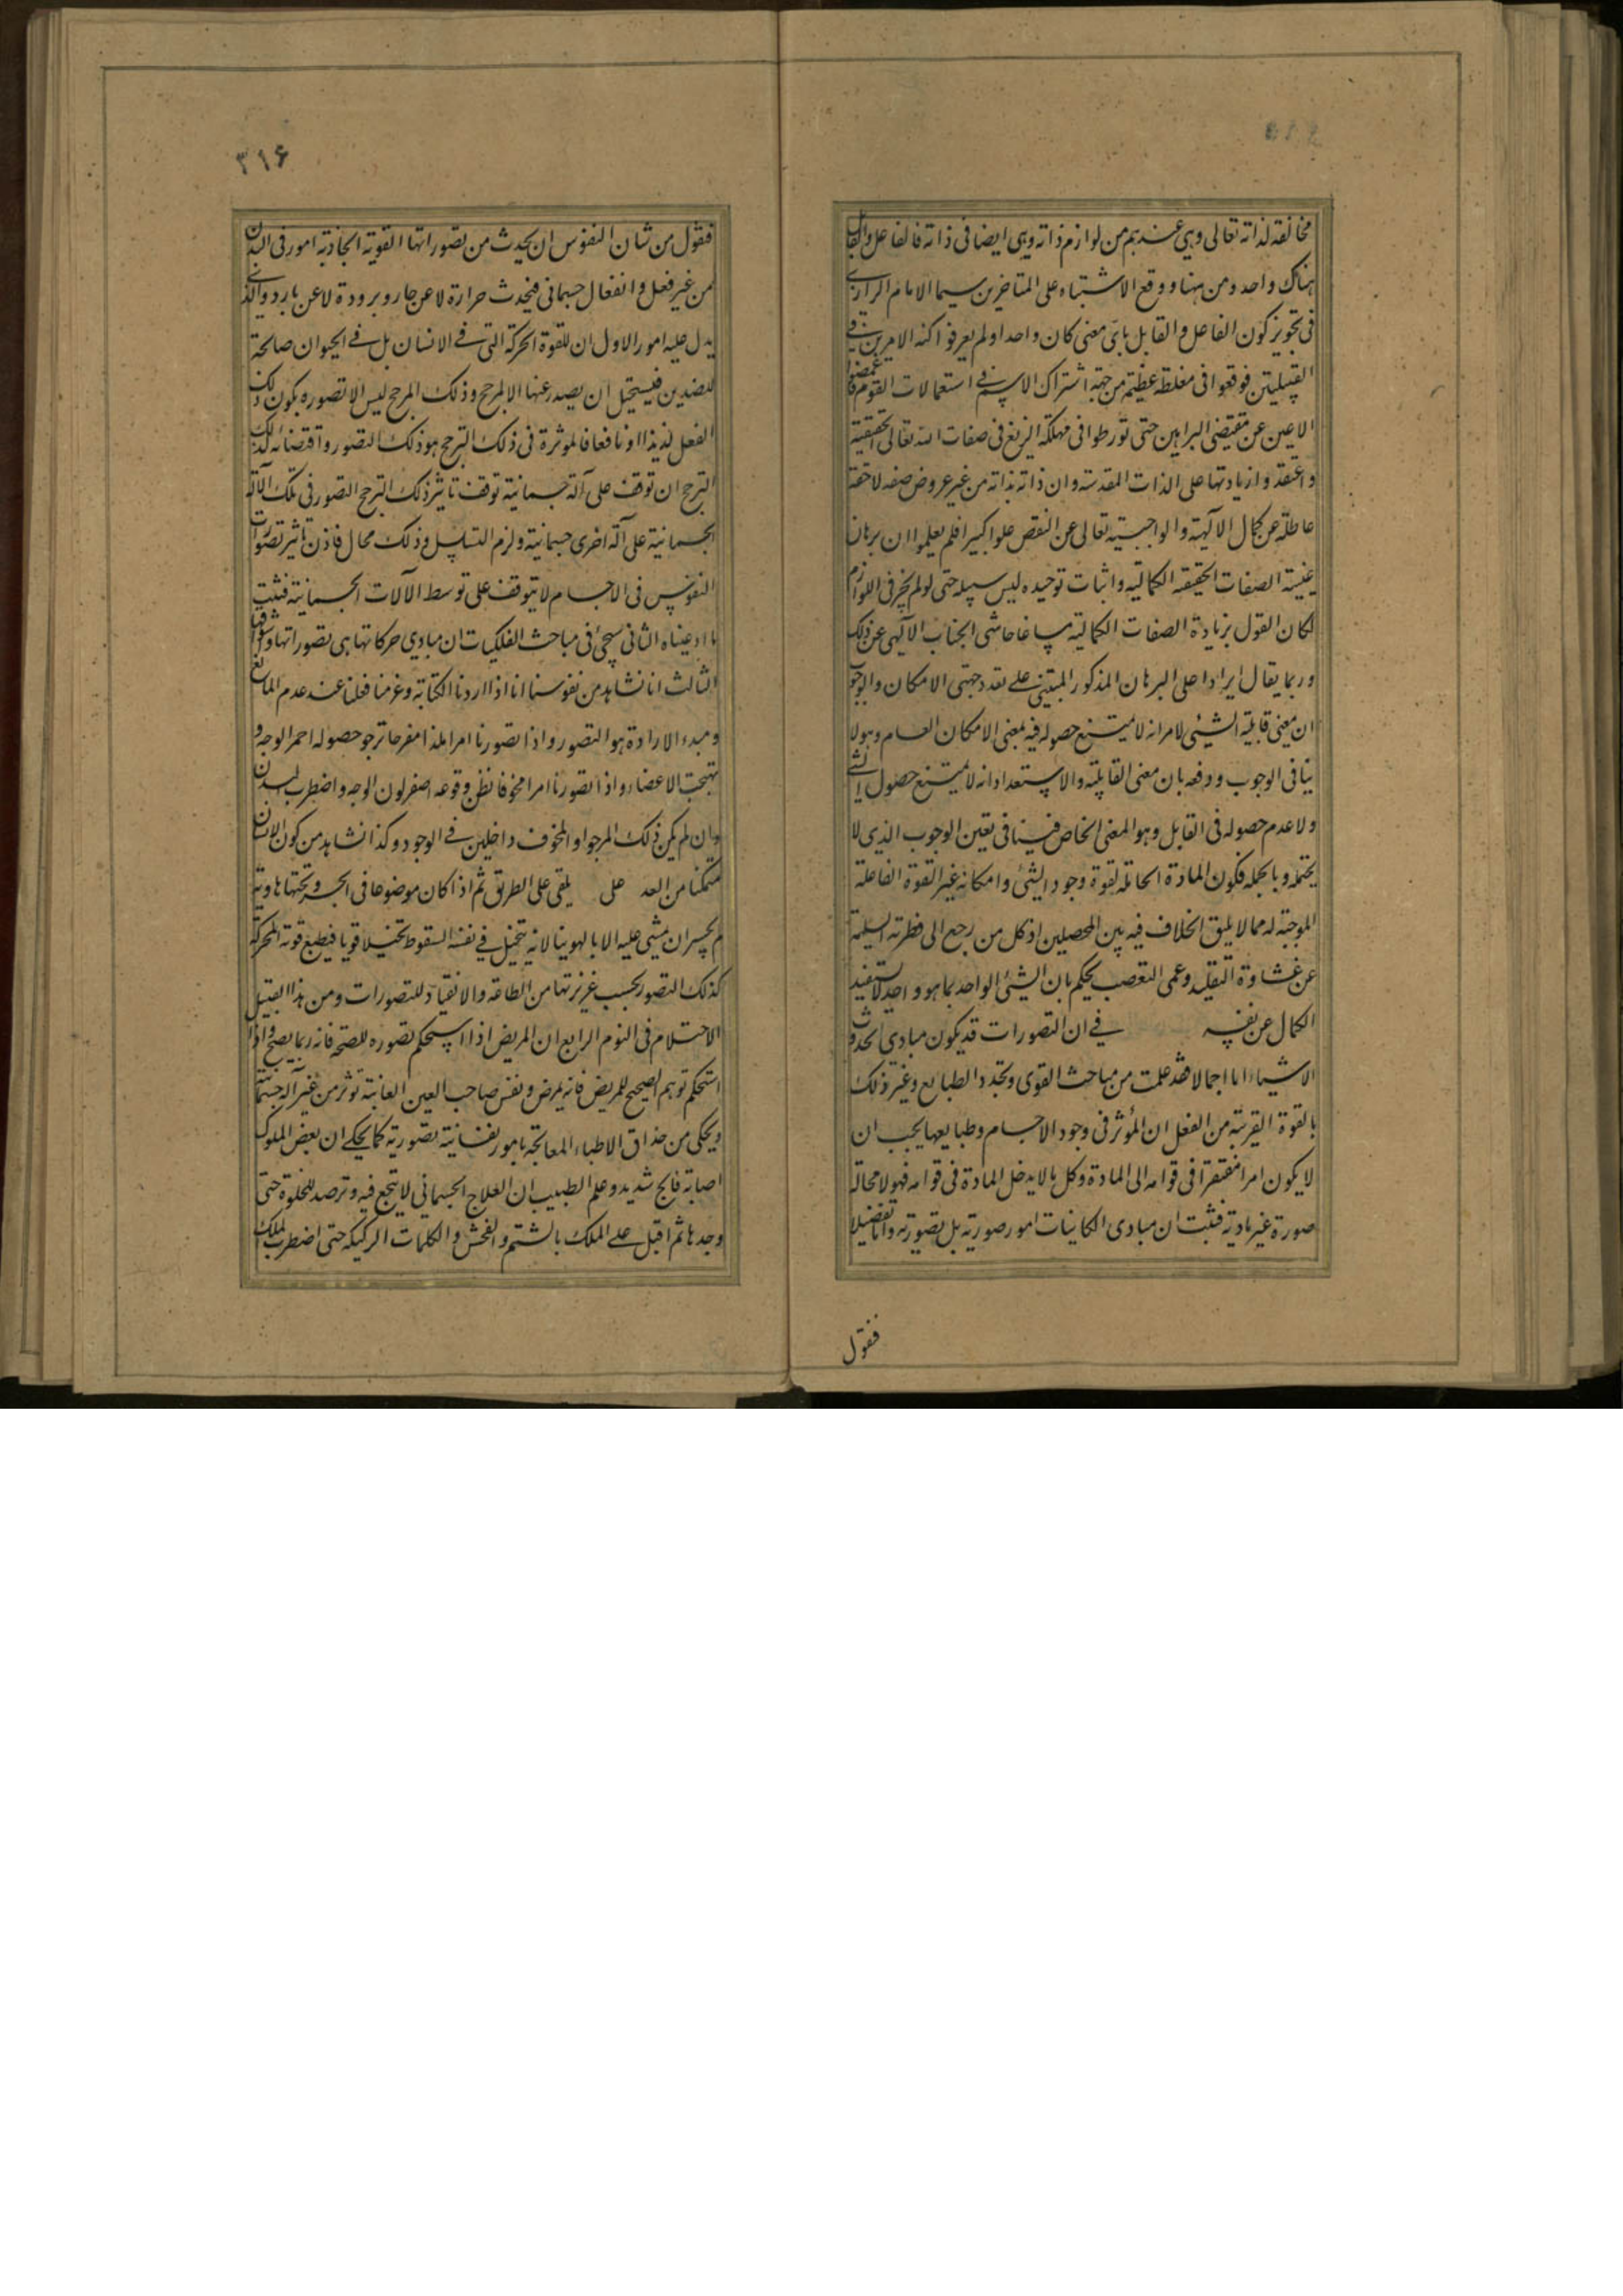 مخالفة لذاته تعالى وهي عندهم من لوازم ذاته وهي ايضا في ذاته فالفاعل والقابل
هناك واحد ومن ههنا ووقع الاشتباه على المتاخرين سيما الامام الرازي
في تجويز كون الفاعل والقابل باي معنى كان واحدا ولم يعرفوا كنه الامرين في
القبيلتين فوقعوا في مغلطة عظيمة من جهة اشتراك الاسم في استعمالات القوم فاغمضوا
الاعين عن مقتضى البراهين حتى تورطوا في مهلكة الزيغ في صفات الله تعالى الحقيقية
واعتقدوا زيادتها على الذات المقدسة وان ذاته بذاته من غير عروض صفه لاحقة
عاطلة عن كمال الالهية والواجبية تعالى عن النقص علوا كبيرا فلم يعلموا ان برهان
عينية الصفات الحقيقه الكمالية واثبات توحيده ليس سبيله حتى لو لم يجز في اللوازم
لكان القول بزيادة الصفات الكمالية مساغا حاشى الجناب الالهي عن ذلك
وربما يقال ايرادا على البرهان المذكور المبتنى على تعدد جهتى الامكان والوجوب
ان معنى قابلية الشيئ لامر انه لا يمتنع حصوله فيه بمعنى الامكان العام وهو لا
ينافى الوجوب ودفعه بان معنى القابلية والاستعداد انه لا يمتنع حصول الشئ
ولا عدم حصوله فى القابل وهو المعنى الخاص فينافى تعين الوجوب الذي لا
يحتمله وبالجمله فكون المادة الحاملة لقوة وجود الشئ وامكانه غير القوة الفاعلة
الموجبة له مما لا يليق الخلاف فيه بين المحصلين اذ كل من رجع الى فطرته السليمة
عن غشاوة التقليد وعمى التعصب يحكم بان الشيئ الواحد بما هو واحد لا يستفيد
الكمال عن نفسه في ان التصورات قد يكون مبادي لحدوث
الاشياء اما اجمالا فقد علمت من مباحث القوى وتجدد الطبايع وغير ذلك
بالقوة القريبة من الفعل ان المؤثر فى وجود الاجسام وطبايعها يجب ان
لا يكون امرا مفتقرا فى قوامه الى المادة وكل ما لا يدخل المادة فى قوامه فهو لا محالة
صورة غير مادية فثبت ان مبادى الكاينات امور صورية بل تصورية واما تفصيلا
فقول
٣١۶
فقول من شان النفوس ان يحدث من تصوراتها القوية الجاذبة امور فى البدن
من غير فعل وانفعال جسمانى فيحدث حرارة لا عن حار وبرودة لا عن بارد والذى
يدل عليه امور الاول ان للقوة المحركة التى في الانسان بل في الحيوان صالحة
للضدين فيستحيل ان يصدر عنها الا لمرجح وذلك المرجح ليس الا تصوره بكون ذلك
الفعل لذيذا او نافعا فالموثرة فى ذلك الترجح هو ذلك التصور واقتضائه لذلك
الترجح ان توقف على آلة جسمانية توقف تاثير ذلك الترجح التصور فى تلك الآلة
الجسمانية على آلة اخرى جسمانية ولزم التسلسل وذلك محال فاذن تاثير تصورات
النفوس فى الاجسام لا يتوقف على توسط الآلات الجسمانية فثبت
ما ادعيناه الثانى سيجئ فى مباحث الفلكيات ان مبادي حركاتها هى تصوراتها وشوقها
الثالث انا نشاهد من نفوسنا انا اذا اردنا الكتابة وعزمنا فعلنا عند عدم المانع
ومبدء الارادة هو التصور واذا تصورنا امرا ملذا مفرحا نرجو حصوله احمر الوجه و
تهيجت الاعضاء واذا تصورنا امرا مخوفا نظن وقوعه اصفر لون الوجه واضطرب البدن
وان لم يكن ذلك المرجو او المخوف داخلين في الوجود وكذا نشاهد من كون الانسان
متمكنا من العد على يلقى على الطريق ثم اذا كان موضوعا فى الجسر وتحتها هاوية
لم يجسر ان يمشى عليه الا بالهوينا لانه يتخيل في نفسه السقوط تخيلا قويا فيطيع قوته المحركة
كذلك التصور بحسب غريزتها من الطاعة والانقياد للتصورات ومن هذا القبيل
الاحتلام فى النوم الرابع ان المريض اذا استحكم تصوره للصحة فانه ربما يصح واذا
استحكم توهم الصحيح للمريض فانه يمرض ونفس صاحب العين العاينة تؤثر من غير آلة جسمانية
ويحكى من حذاق الاطباء المعالجة بامور نفسانية تصورية كما يحكي ان بعض الملوك
اصابه فالج شديد وعلم الطبيب ان العلاج الجسمانى لا ينجع فيه وترصد للخلوة حتى
وجدها ثم اقبل على الملك بالشتم والفحش والكلمات الركيكة حتى اضطرب الملك